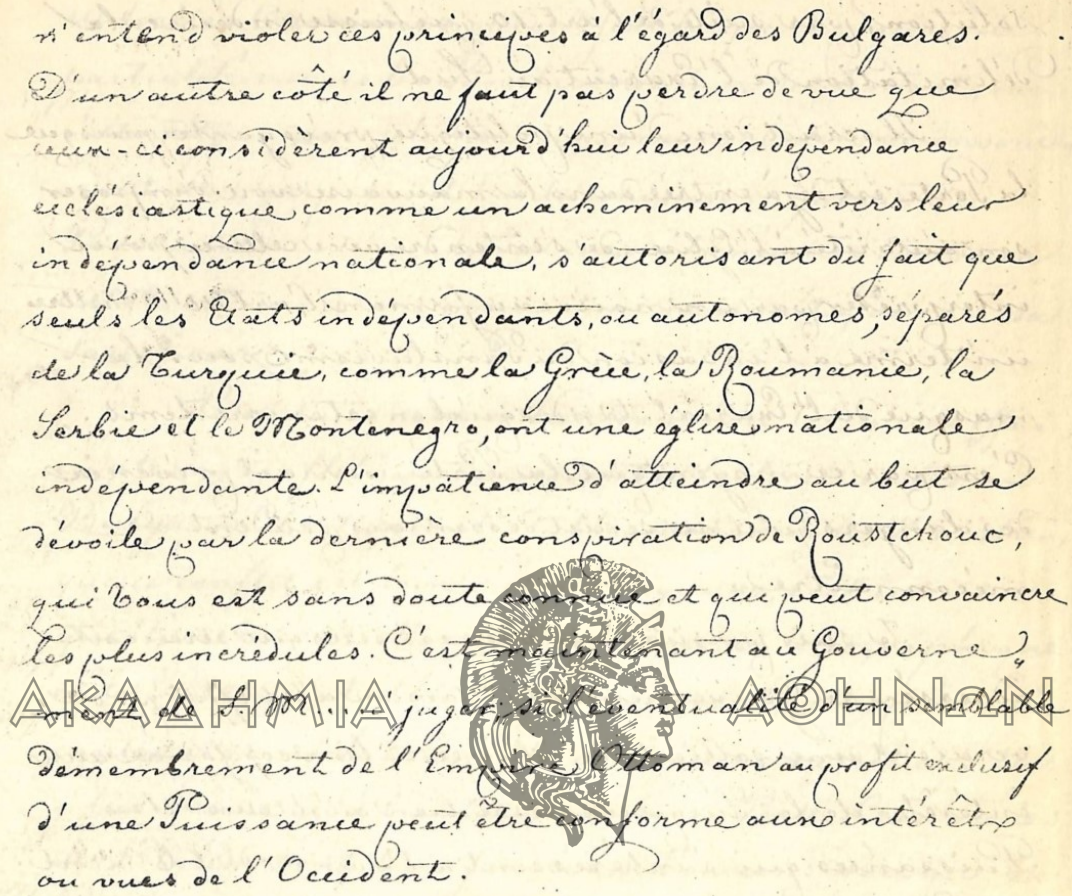 n'entend violer ces principes à l'égard des Bulgares.
D'un autre côté il ne faut pas perdre de vue que
ceux-ci considèrent aujourd'hui leur indépendance
ecclésiastique comme un acheminement vers leur
indépendance nationale, s'autorisant du fait que
seuls les Etats indépendants, ou autonomes, séparés
de la Turquie, comme la Grèce, la Roumanie, la
Serbie et le Montenegro, ont une église nationale
indépendante. L'impatience d'atteindre au but se
dévoile par la dernière conspiration de Roustchouc,
qui Vous est sans doute connue et qui peut convaincre
les plus incrédules. C'est maintenant au Gouverne„
ΑΚΑΔΗΜΙΑ ΑΘΗΝΩΝ
ment de S. M.... à juger, si l'éventualité d'un semblable
démembrement de l'Empire Ottoman au profit exclusif
d'une Puissance peut être conforme aux intérêts
ou vues de l'Occident.